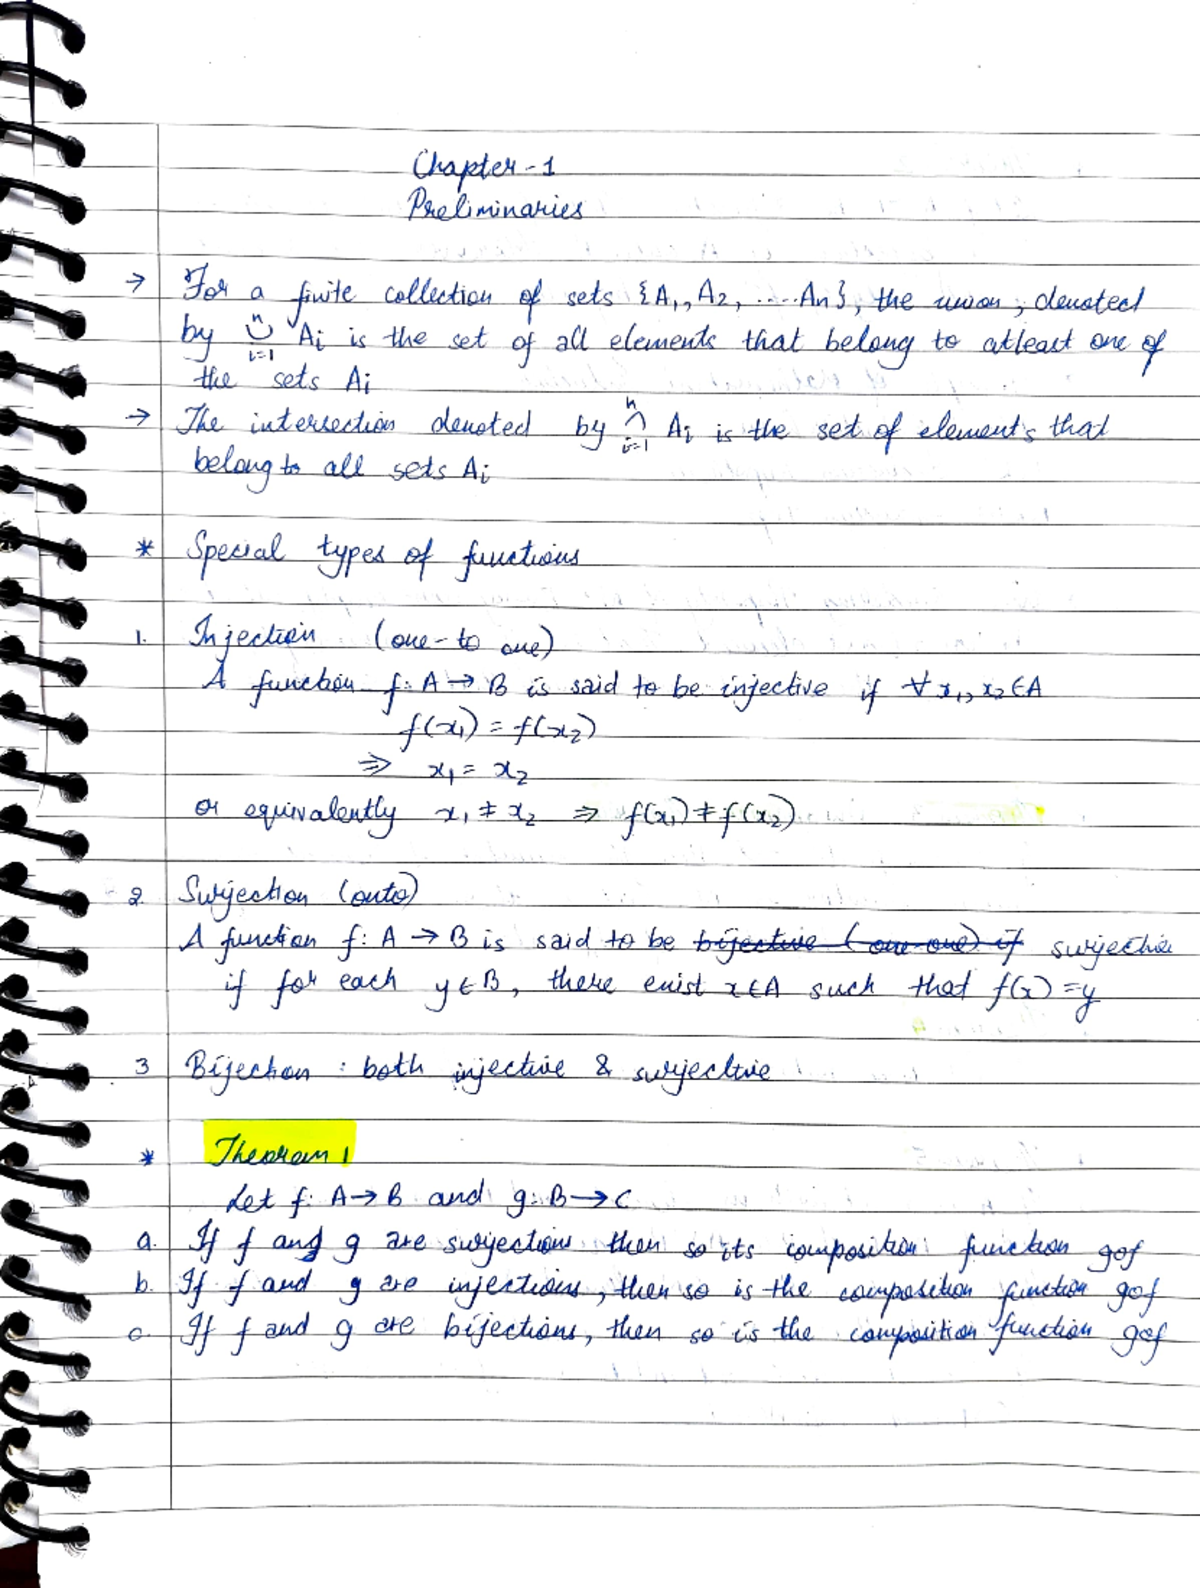 Chapter-1
Preliminaries
→ For a finite collection of sets {A₁, A₂, .....An}, the union, denoted
by ⋃ᵢ₌₁ⁿ Aᵢ is the set of all elements that belong to atleast one of
the sets Aᵢ
→ The intersection denoted by ⋂ᵢ₌₁ⁿ Aᵢ is the set of elements that
belong to all sets Aᵢ
* Special types of functions
1. Injection (one-to one)
A function f: A → B is said to be injective if ∀ x₁, x₂ ∈ A
f(x₁) = f(x₂)
⇒ x₁ = x₂
or equivalently x₁ ≠ x₂ ⇒ f(x₁) ≠ f(x₂)
2. Surjection (onto)
A function f: A → B is said to be ~~bijective (one-one) if~~ surjective
if for each y ∈ B, there exist x ∈ A such that f(x) = y
3 Bijection : both injective & surjective
* Theorem 1
Let f: A → B and g: B → C
a. If f and g are surjections then so its composition function gof
b. If f and g are injections, then so is the composition function gof
c. If f and g are bijections, then so is the composition function gof